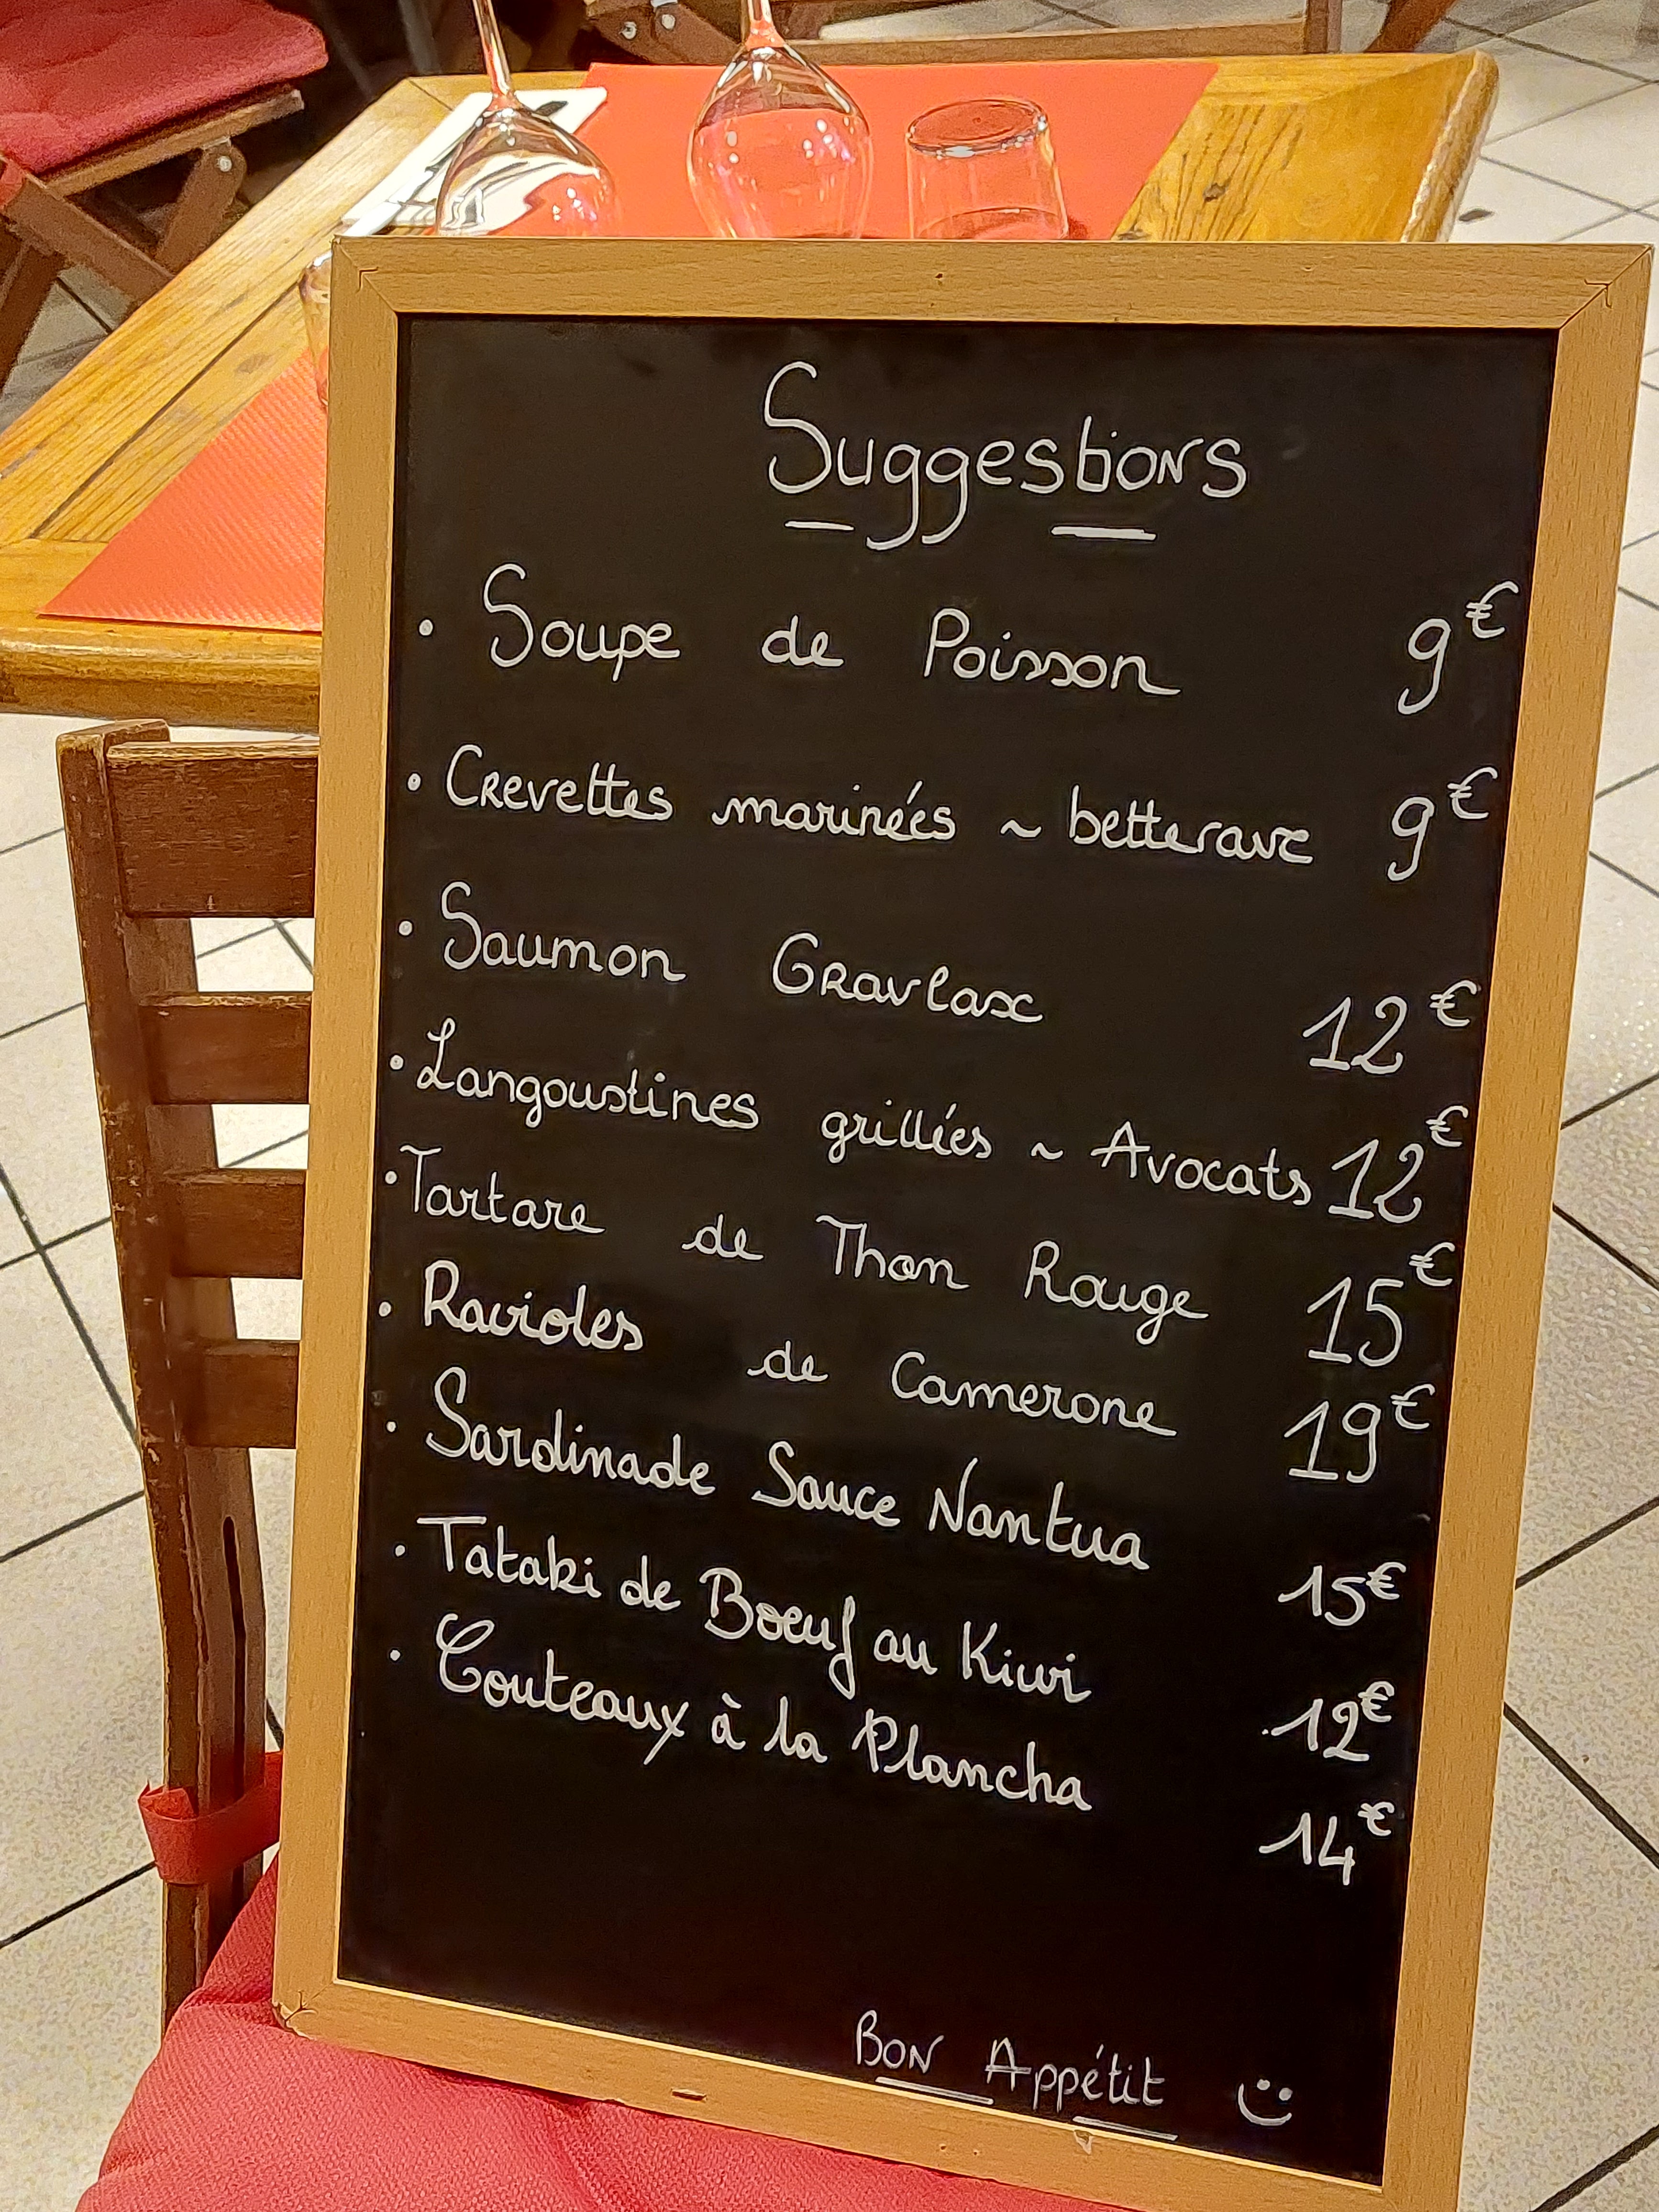 Suggestions
• Soupe de Poisson 9€
• Crevettes marinées ~ betterave 9€
• Saumon Gravlax 12€
• Langoustines grillées ~ Avocats 12€
• Tartare de Thon Rouge 15€
• Ravioles de Camerone 19€
• Sardinade Sauce Nantua 15€
• Tataki de Boeuf au Kiwi 12€
• Couteaux à la Plancha 14€
Bon Appétit